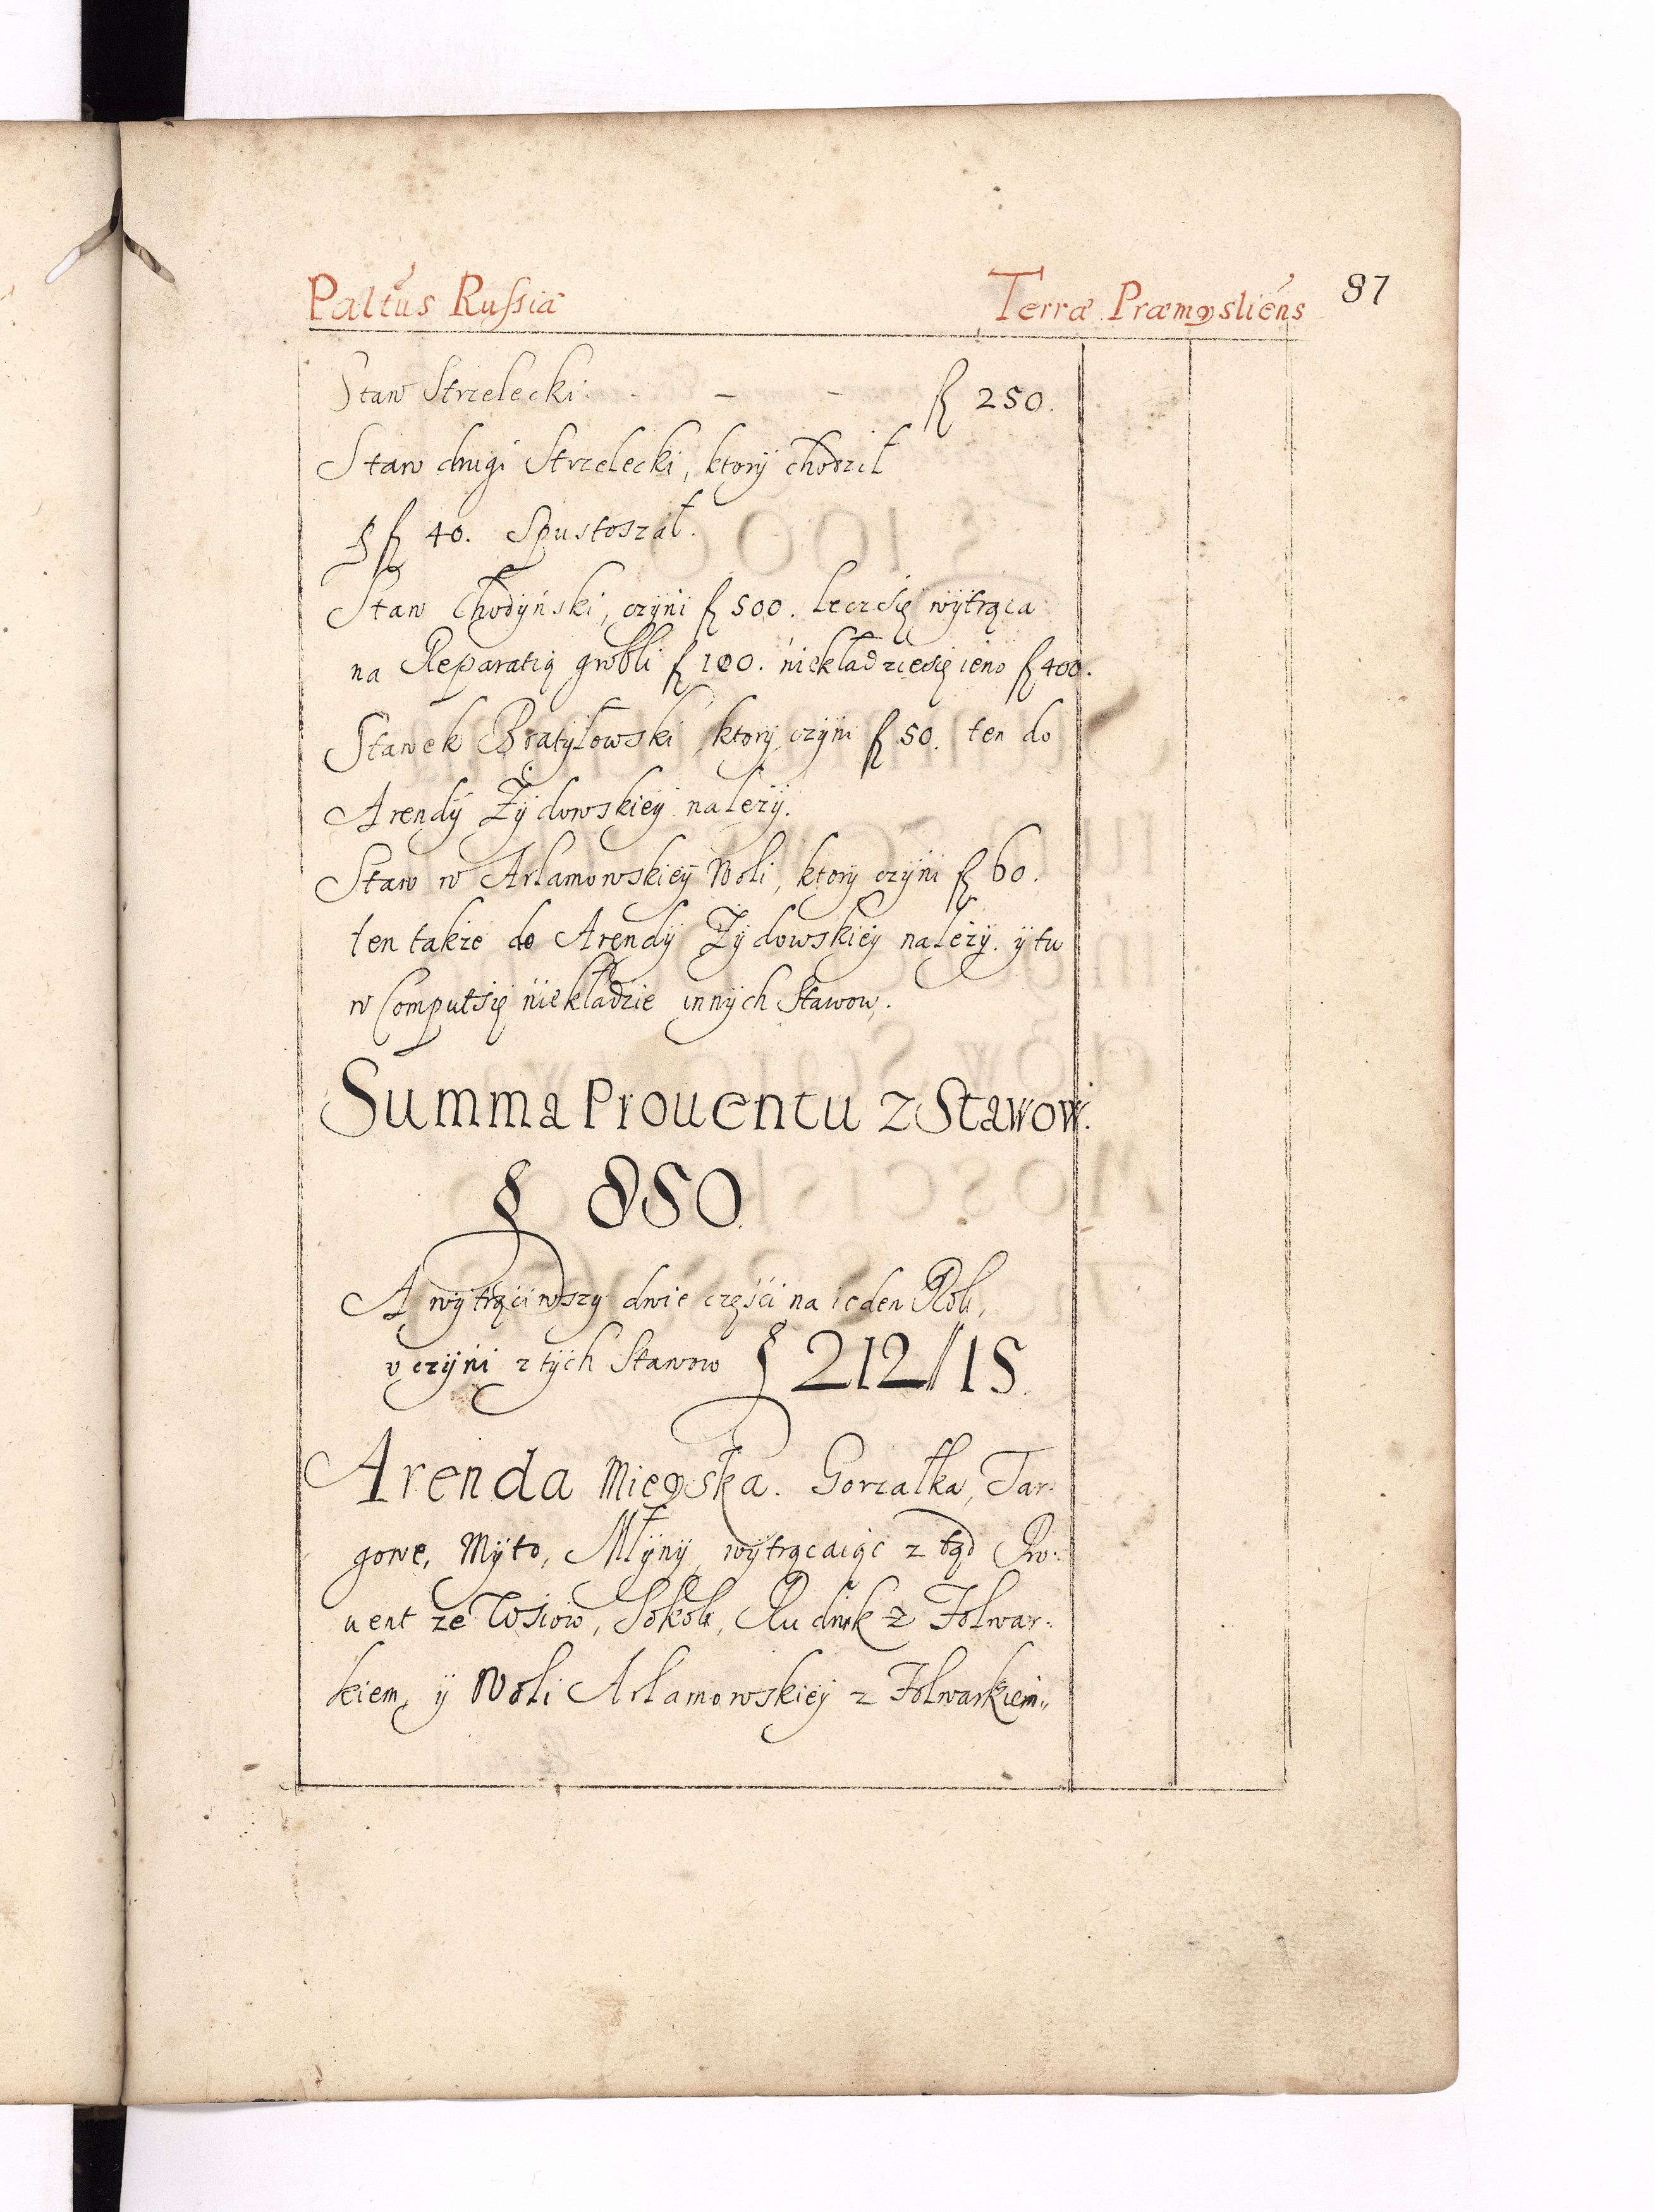 Paltus Russiæ Terræ Præmysliens 87
Staw Strzelecki. - - - fl 250.
Staw drugi Strzelecki, ktorÿ chodził
P fl 40. Spustoszał.
Staw Chodÿnski, czÿni fl 500. lecz się wÿtrąca
na Reparatią grobli fl 100. niekładzie się ieno fl 400.
Stawek Bratÿłowski ktorÿ czÿni fl 50. ten do
Arendÿ Żÿdowskieÿ należÿ.
Staw w Arlamowskieÿ Woli, ktorÿ czÿni fl 60.
ten także do Arendÿ Żÿdowskieÿ należÿ. ÿ tu
w Comput się niekładzie innÿch Stawow.
Summa Prouentu z Stawow.
fl 850.
A wÿtrąciwszÿ dwie części na ieden Rok,
vczÿni z tÿch Stawow fl 212 // 15.
Arenda Mieÿska. Gorzałka, Tar:
gowe, Mÿto, Młÿnÿ, wÿtrącaiąc z tąd Pro:
uent ze Wsiow, Sokoli, Rudnik z Folwar:
kiem, ÿ Woli Arlamowskieÿ z Folwarkiem,,